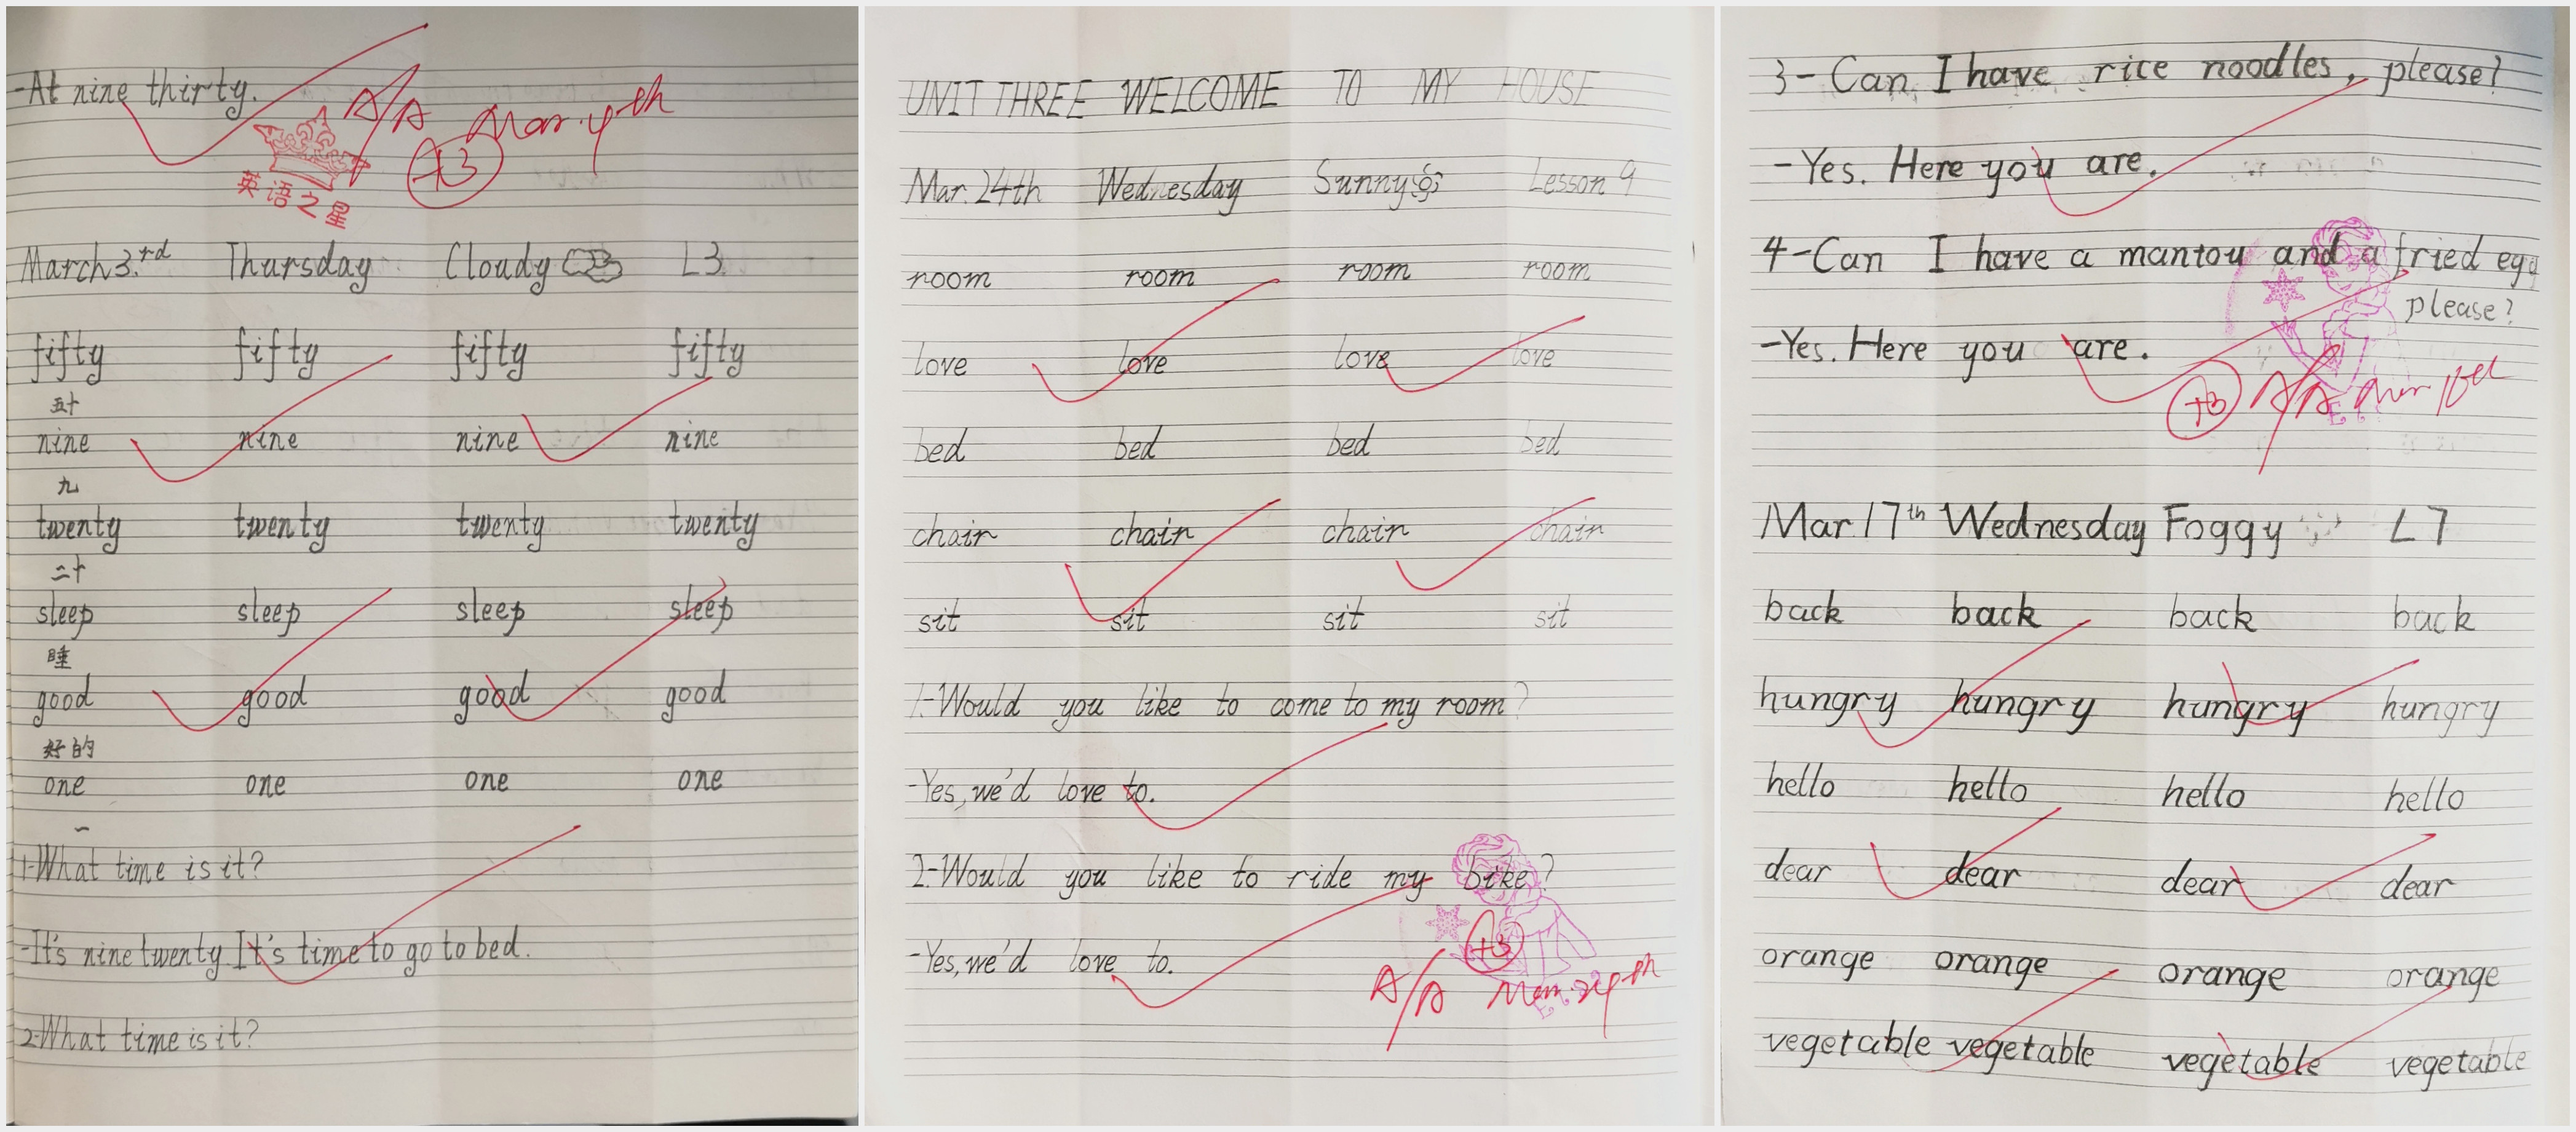 -At nine thirty.
A/A
+3
Mar.4th
英语之星
March3.rd Thursday Cloudy L3
fifty fifty fifty fifty
五十
nine nine nine nine
九
twenty twenty twenty twenty
二十
sleep sleep sleep sleep
睡
good good good good
好的
one one one one
一
1-What time is it?
-It's nine twenty It's time to go to bed.
2-What time is it?
UNIT THREE WELCOME TO MY HOUSE
Mar.24th Wednesday Sunny Lesson 9
room room room room
love love love love
bed bed bed bed
chair chair chair chair
sit sit sit sit
1-Would you like to come to my room?
-Yes, we'd love to.
2-Would you like to ride my bike?
-Yes, we'd love to.
+3
A/A
3-Can I have rice noodles, please?
-Yes. Here you are.
4-Can I have a mantou and a fried egg
please?
-Yes. Here you are.
+3 A/A
Mar.17th Wednesday Foggy L7
back back back back
hungry hungry hungry hungry
hello hello hello hello
dear dear dear dear
orange orange orange orange
vegetable vegetable vegetable vegetable